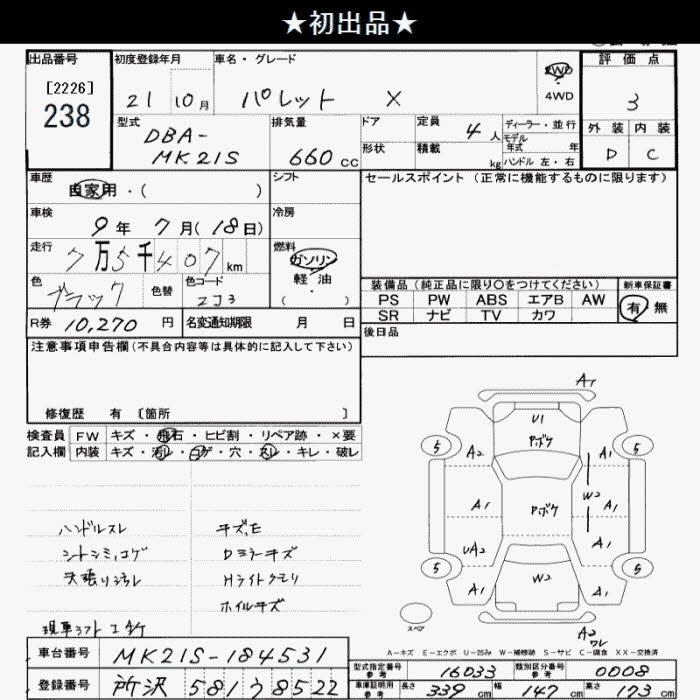 ★初出品★
出品番号
[2226]
238
初度登録年月
21 10月
車名・グレード
パレット X
2WD
4WD
評価点
3
外装 内装
D C
型式
DBA-
MK21S
排気量
660 cc
ドア
形状
定員
4 人
積載
kg
ディーラー・並行
モデル
年式 年
ハンドル 左・右
車歴
自家用・( )
シフト
セールスポイント(正常に機能するものに限ります)
車検
9年 7月(18日)
冷房
走行
7万5千407km
燃料
ガソリン
軽油
・( )
色
ブラック
色替
色コード
ZJ3
R券 10,270 円
名変通知期限 月 日
装備品(純正品に限り○をつけてください)
PS PW ABS エアB AW
SR ナビ TV カワ
新車保証書
有 無
後日品
注意事項申告欄(不具合内容等は具体的に記入して下さい)
修復歴 有 〔箇所 〕
検査員
記入欄
FW キズ・飛石・ヒビ割・リペア跡・×要
内装 キズ・汚レ・コゲ・穴・スレ・キレ・破レ
ハンドルスレ
シートシミ、コゲ
天張りヨゴレ
キズ、E
Dミラーキズ
Hライトクモリ
ホイルキズ
A1
U1
Pボケ
5 A2 A1 5
A1 Pボケ W2 A1
5 UA2 A1 5
A1 W2 A1
スペア
A2
ワレ
A-キズ E-エクボ U-凹み W-補修跡 S-サビ C-腐食 XX-交換済
車台番号 MK21S-184531
登録番号 所沢 581 う 8522
型式指定番号
参考
16033
類別区分番号
参考
0008
車庫証明用
参考
長さ 339 cm 幅 147 cm 高さ 173 cm